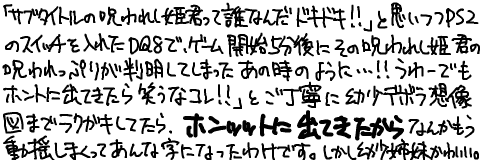 「サブタイトルの呪われし姫君って誰なんだドキドキ!!」と思いつつPS2
のスイッチを入れたDQ8で、ゲーム開始5分後にその呪われし姫君の
呪われっぷりが判明してしまったあの時のように…!!うわーでも
ホントに出てきたら笑うなコレ!!」とご丁寧に幼少ギボラ想像
図までラクガキしてたら、ホンッットに出てきたからなんかもう
動揺しまくってあんな字になったわけです。しかし幼少姉妹かわいい。